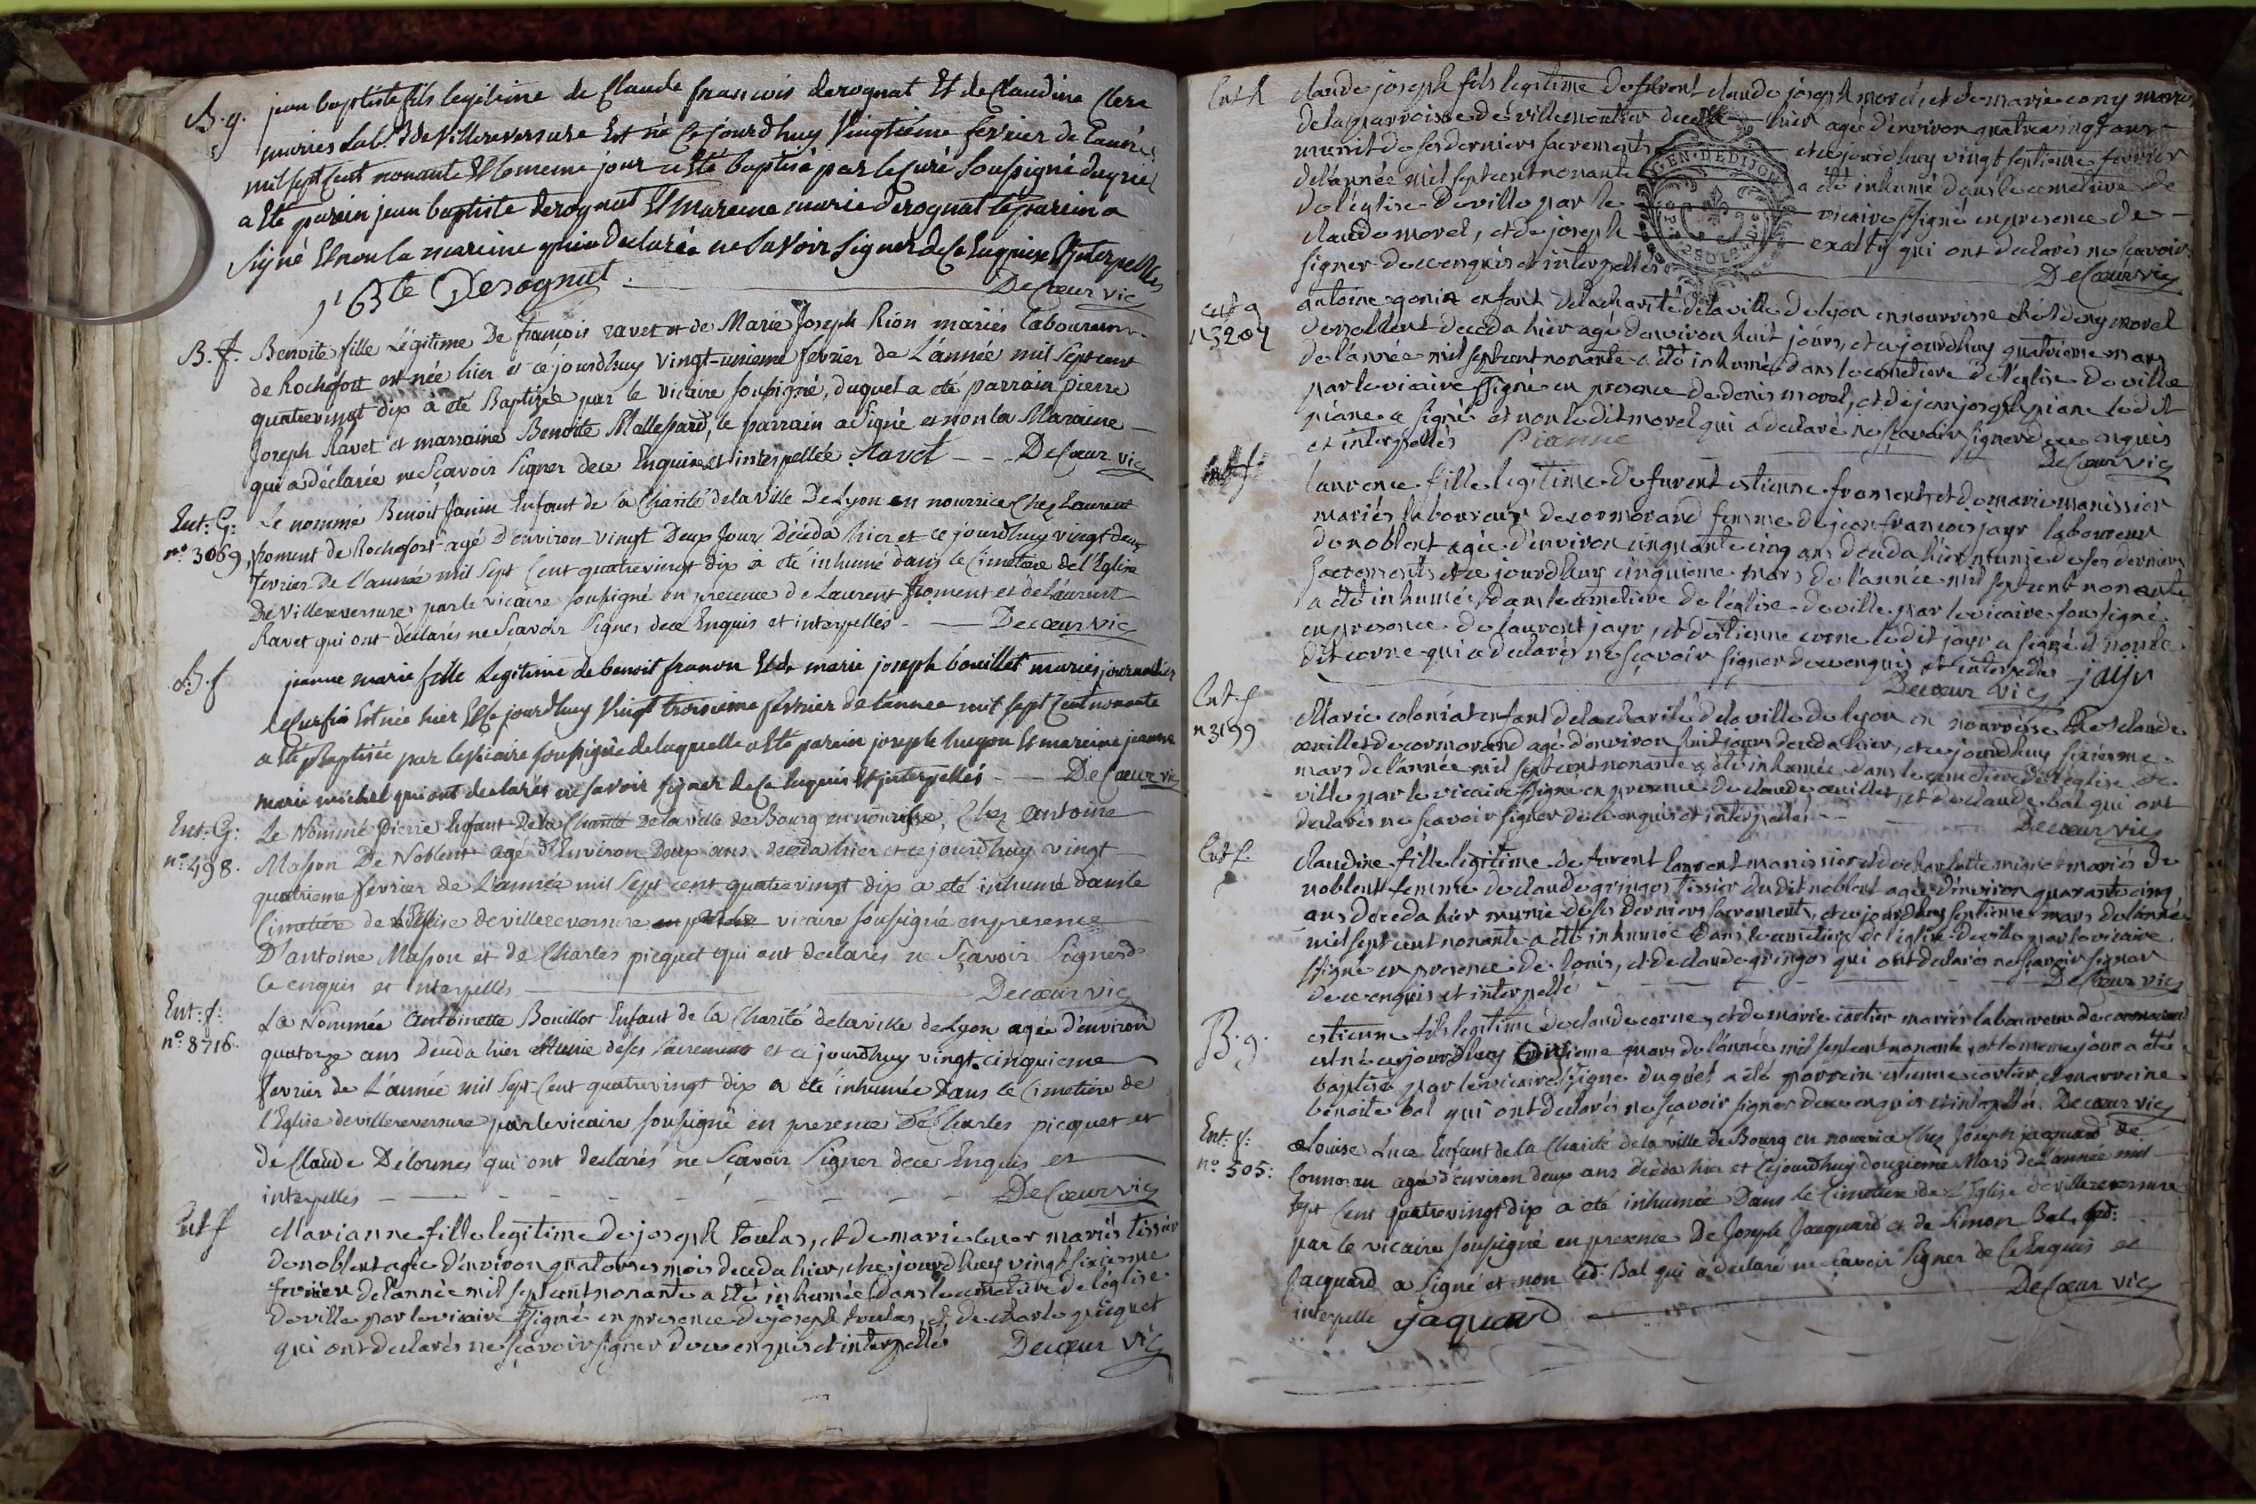 B. g. jean baptiste fils legitime de Claude francois derognat Et de Claudine Clere
mariés lab.rs de Villereversure Est né Ce jourdhuy Vingtieme fevrier de L'année
mil sept Cent nonante Et le meme jour a Eté baptisé par le Curé Soussigné duquel
a Eté parein jean baptiste derognat Et mareine marie derognat le parein a
Signé Et non la mareine qui a declarée ne Savoir Signer de Ce Enquise Et interpellée
j Bte Derognat Decœur vic
B. f. Benoite fille Légitime De françois ravet et de Marie Joseph Rion mariés Laboureurs
de Rochefort est née hier et ce jourdhuy vingt-unieme fevrier de L'année mil Sept cent
quatrevingt dix à eté Baptisée par le vicaire soussigné, duquel a eté parrain pierre
Joseph Ravet et marraine Benoite Mallessard, le parrain a Signé et non la Maraine
qui a déclarée ne Sçavoir Signer de ce Enquise et interpellée Ravet - - - Decœur vic
Ent: G: Le nommé Benoit Janin Enfant de la Charité de la ville De Lyon en nourrice Chez Laurent
n° 3069 froment de Rochefort agé D'environ vingt Deux Jour Décéda hier et ce jourdhuy vingt deux
fevrier De l'année mil Sept Cent quatrevingt dix à eté inhumé dans le Cimetiere de l'Eglise
De Villereversure par le vicaire soussigné en presence de Laurent froment et de Laurent
Ravet qui ont declarés ne Sçavoir Signer de ce Enquis et interpellés - Decœur vic
B. f jeanne marie fille Legitime de benoit franon Et de marie joseph bouillet mariés journaliers
Est née hier Et Ce jourdhuy Vingt troisieme fevrier de Lannee mil sept Cent nonante
a Eté Baptisée par le vicaire soussigné de laquelle a Eté parein joseph hugon Et mareine jeanne
marie michel qui ont declarés ne Savoir signer de Ce Enquis Et interpellés - Decœur vic
Ent: G: Le Nommé pierre Enfant De la Charité De la ville de Bourg en nourisse, Chez antoine
n° 498. Masson De Noblent agé d'Environ Deux ans deceda hier et ce jourdhuy vingt
quatrieme fevrier de L'année mil Sept cent quatrevingt dix a eté inhumé dans le
Cimetière de l'Eglise de villereversure vicaire soussigné en presence
D'antoine Masson et de Charles picquet qui ont declarés ne Sçavoir Signer de
Ce enquis et interpellés Decœur vic
Ent: f: La Nommée Antoinette Bouillot Enfant de la Charité de la ville de Lyon agée d'environ
n° 8716. quatorze ans Deceda hier Munie de ses Sacrements et ce jourdhuy vingt. cinquieme
fevrier de L'année mil Sept Cent quatrevingt dix a eté inhumée Dans le Cimetière de
l'Eglise de villereversure par le vicaire soussigné en presence De Charles picquet et
de Claude Delormes qui ont declarés ne Sçavoir Signer de ce Enquis et
interpellés Decœur vic
Ent f Marianne fille legitime de joseph toulas, et de marie mariés tissier
de noblent agée d'environ quatorze mois deceda hier, et ce jourdhuy vingt sixieme
fevrier de lannée mil sept cent nonante a eté inhumée dans le cimetiere de l'eglise
de ville par le vicaire ssigné en presence de joseph toulas, et de charle picquet
qui ont declarés ne sçavoir signer de ce enquis et interpellés Decœur vic
Ent h claude joseph fils legitime de furent claude joseph morel, et de marie cony mariés
de la parroisse de villemoutier deceda hier agé d'environ quatrevingt ans
munit de ses derniers sacrements et ce jourdhuy vingt septieme fevrier
de l'année mil sept cent nonante a eté inhumé dans le cimetiere de
de l'église de ville par le vicaire ssigné en presence de
claude morel, et de joseph qui ont declarés ne sçavoir
signer de ce enquis et interpellés Decœur vic
GEN. DE DIJON
Ent g antoine gonin enfant de la charité de la ville de lyon en nourrisse chés deny morel
n 3204 de noblent deceda hier agé denviron huit jours, et ce jourdhuy quatrieme mars
de l'année mil sept cent nonante a eté inhumé dans le cimetiere de l'église de ville
par le vicaire ssigné en presence de denis morel, et de jean joseph piane le dit
piane a signé et non le dit morel qui a declaré ne sçavoir signer de ce enquis
et interpellés Pianne Decœur vic
Ent f: laurence fille legitime de furent estienne froment et de marie manissier
mariés laboureurs de cormorand femme de jean francois jayr laboureur
de noblent agée d'environ cinquante cinq ans deceda hier munie de ses derniers
sacrements et ce jourdhuy cinquieme mars de l'année mil sept cent nonante
a eté inhumée dans le cimetiere de l'église de ville par le vicaire soussigné
en presence de laurent jayr, et d'estienne corne le dit jayr a signé et non le
dit corne qui a declarés ne sçavoir signer de ce enquis et interpellés jayr
Decœur vic
Ent. f Marie coloniat enfant de la charité de la ville de lyon en nourrisse chés claude
n 3199 œuillet de cormorand agé d'environ huit jours deceda hier, et ce jourdhuy sixieme
mars de l'année mil sept cent nonante a eté inhumée dans le cimetiere de l'église de
ville par le vicaire ssigné en presence de claude œuillet, et de claude bal qui ont
declarés ne sçavoir signer de ce enquis et interpellés Decœur vic
Ent f. claudine fille legitime de furent laurent manissier et de charlotte mariés de
noblent femme de claude gringoz tissier du dit noblent agée d'environ quarante cinq
ans deceda hier munie de ses derniers sacrements, et ce jourdhuy septieme mars de l'année
mil sept cent nonante a eté inhumée dans le cimetiere de l'église de ville par le vicaire
ssigné en presence de louis, et de claude gringoz qui ont declarés ne sçavoir signer
de ce enquis et interpellé Decœur vic
B. g. estienne fils legitime de claude corne, et de marie cartier mariés laboureur de cormorand
est né ce jourdhuy onzieme mars de l'année mil sept cent nonante, et le meme jour a eté
baptisé par le vicaire ssigné duquel a eté parrain estienne cartier, et marreine
benoite bal qui ont declarés ne sçavoir signer de ce enquis et interpellés. Decœur vic
Ent: f: Louise Luce Enfant de la Charité de la ville de Bourg en nourrice Chez Joseph jacquard de
n° 505: Cormoran agée d'environ deux ans deceda hier et Cejourdhuy douzieme Mars de L'année mil
Sept Cent quatrevingt dix a eté inhumée Dans le Cimetiere de L'Eglise de villereversure
par le vicaire soussigné en presence De Joseph Jacquard et de Simon Bal. led:
Jacquard a Signé et non led. Bal qui a declaré ne Sçavoir Signer de Ce Enquis et
interpellé jaquard Decœur vic